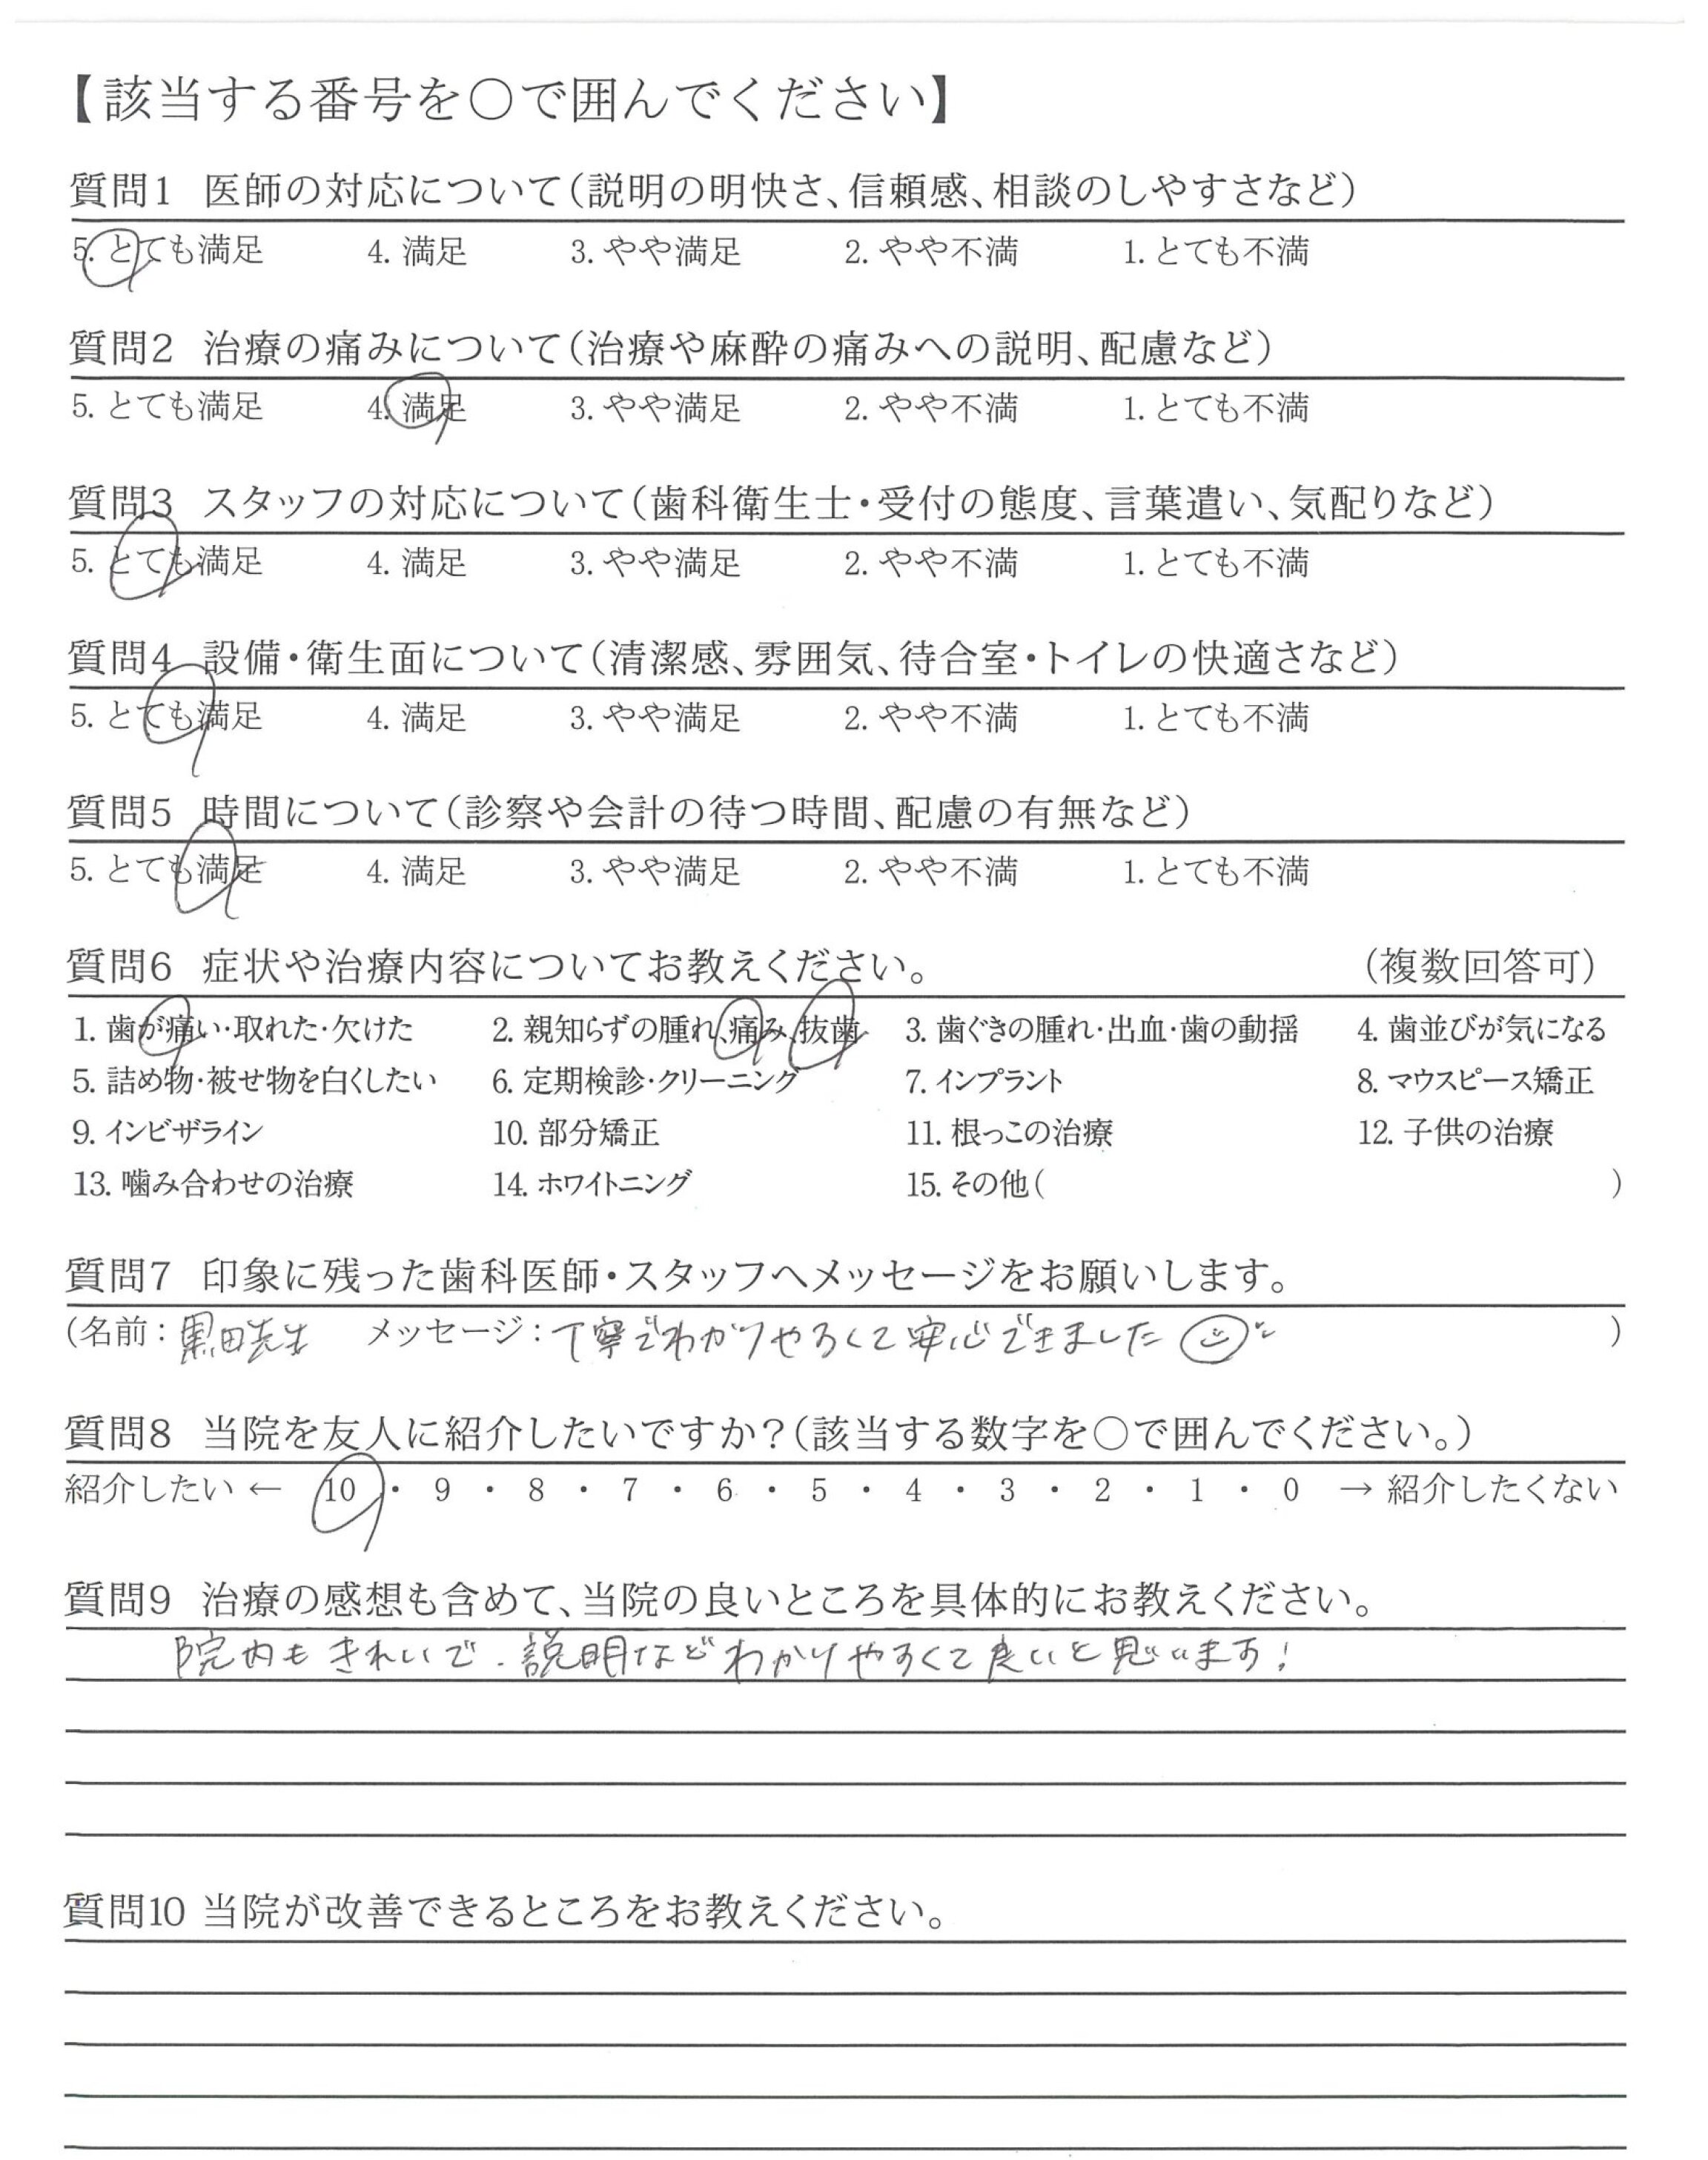 【該当する番号を○で囲んでください】
質問1 医師の対応について(説明の明快さ、信頼感、相談のしやすさなど)
5. とても満足 4. 満足 3. やや満足 2. やや不満 1. とても不満
質問2 治療の痛みについて(治療や麻酔の痛みへの説明、配慮など)
5. とても満足 4. 満足 3. やや満足 2. やや不満 1. とても不満
質問3 スタッフの対応について(歯科衛生士・受付の態度、言葉遣い、気配りなど)
5. とても満足 4. 満足 3. やや満足 2. やや不満 1. とても不満
質問4 設備・衛生面について(清潔感、雰囲気、待合室・トイレの快適さなど)
5. とても満足 4. 満足 3. やや満足 2. やや不満 1. とても不満
質問5 時間について(診察や会計の待つ時間、配慮の有無など)
5. とても満足 4. 満足 3. やや満足 2. やや不満 1. とても不満
質問6 症状や治療内容についてお教えください。 (複数回答可)
1. 歯が痛い・取れた・欠けた 2. 親知らずの腫れ、痛み、抜歯 3. 歯ぐきの腫れ・出血・歯の動揺 4. 歯並びが気になる
5. 詰め物・被せ物を白くしたい 6. 定期検診・クリーニング 7. インプラント 8. マウスピース矯正
9. インビザライン 10. 部分矯正 11. 根っこの治療 12. 子供の治療
13. 噛み合わせの治療 14. ホワイトニング 15. その他( )
質問7 印象に残った歯科医師・スタッフへメッセージをお願いします。
(名前:黒田先生 メッセージ:丁寧でわかりやるくて安心できました )
質問8 当院を友人に紹介したいですか?(該当する数字を○で囲んでください。)
紹介したい ← 10 ・ 9 ・ 8 ・ 7 ・ 6 ・ 5 ・ 4 ・ 3 ・ 2 ・ 1 ・ 0 → 紹介したくない
質問9 治療の感想も含めて、当院の良いところを具体的にお教えください。
院内もきれいで、説明などわかりやすくて良いと思います!
質問10 当院が改善できるところをお教えください。